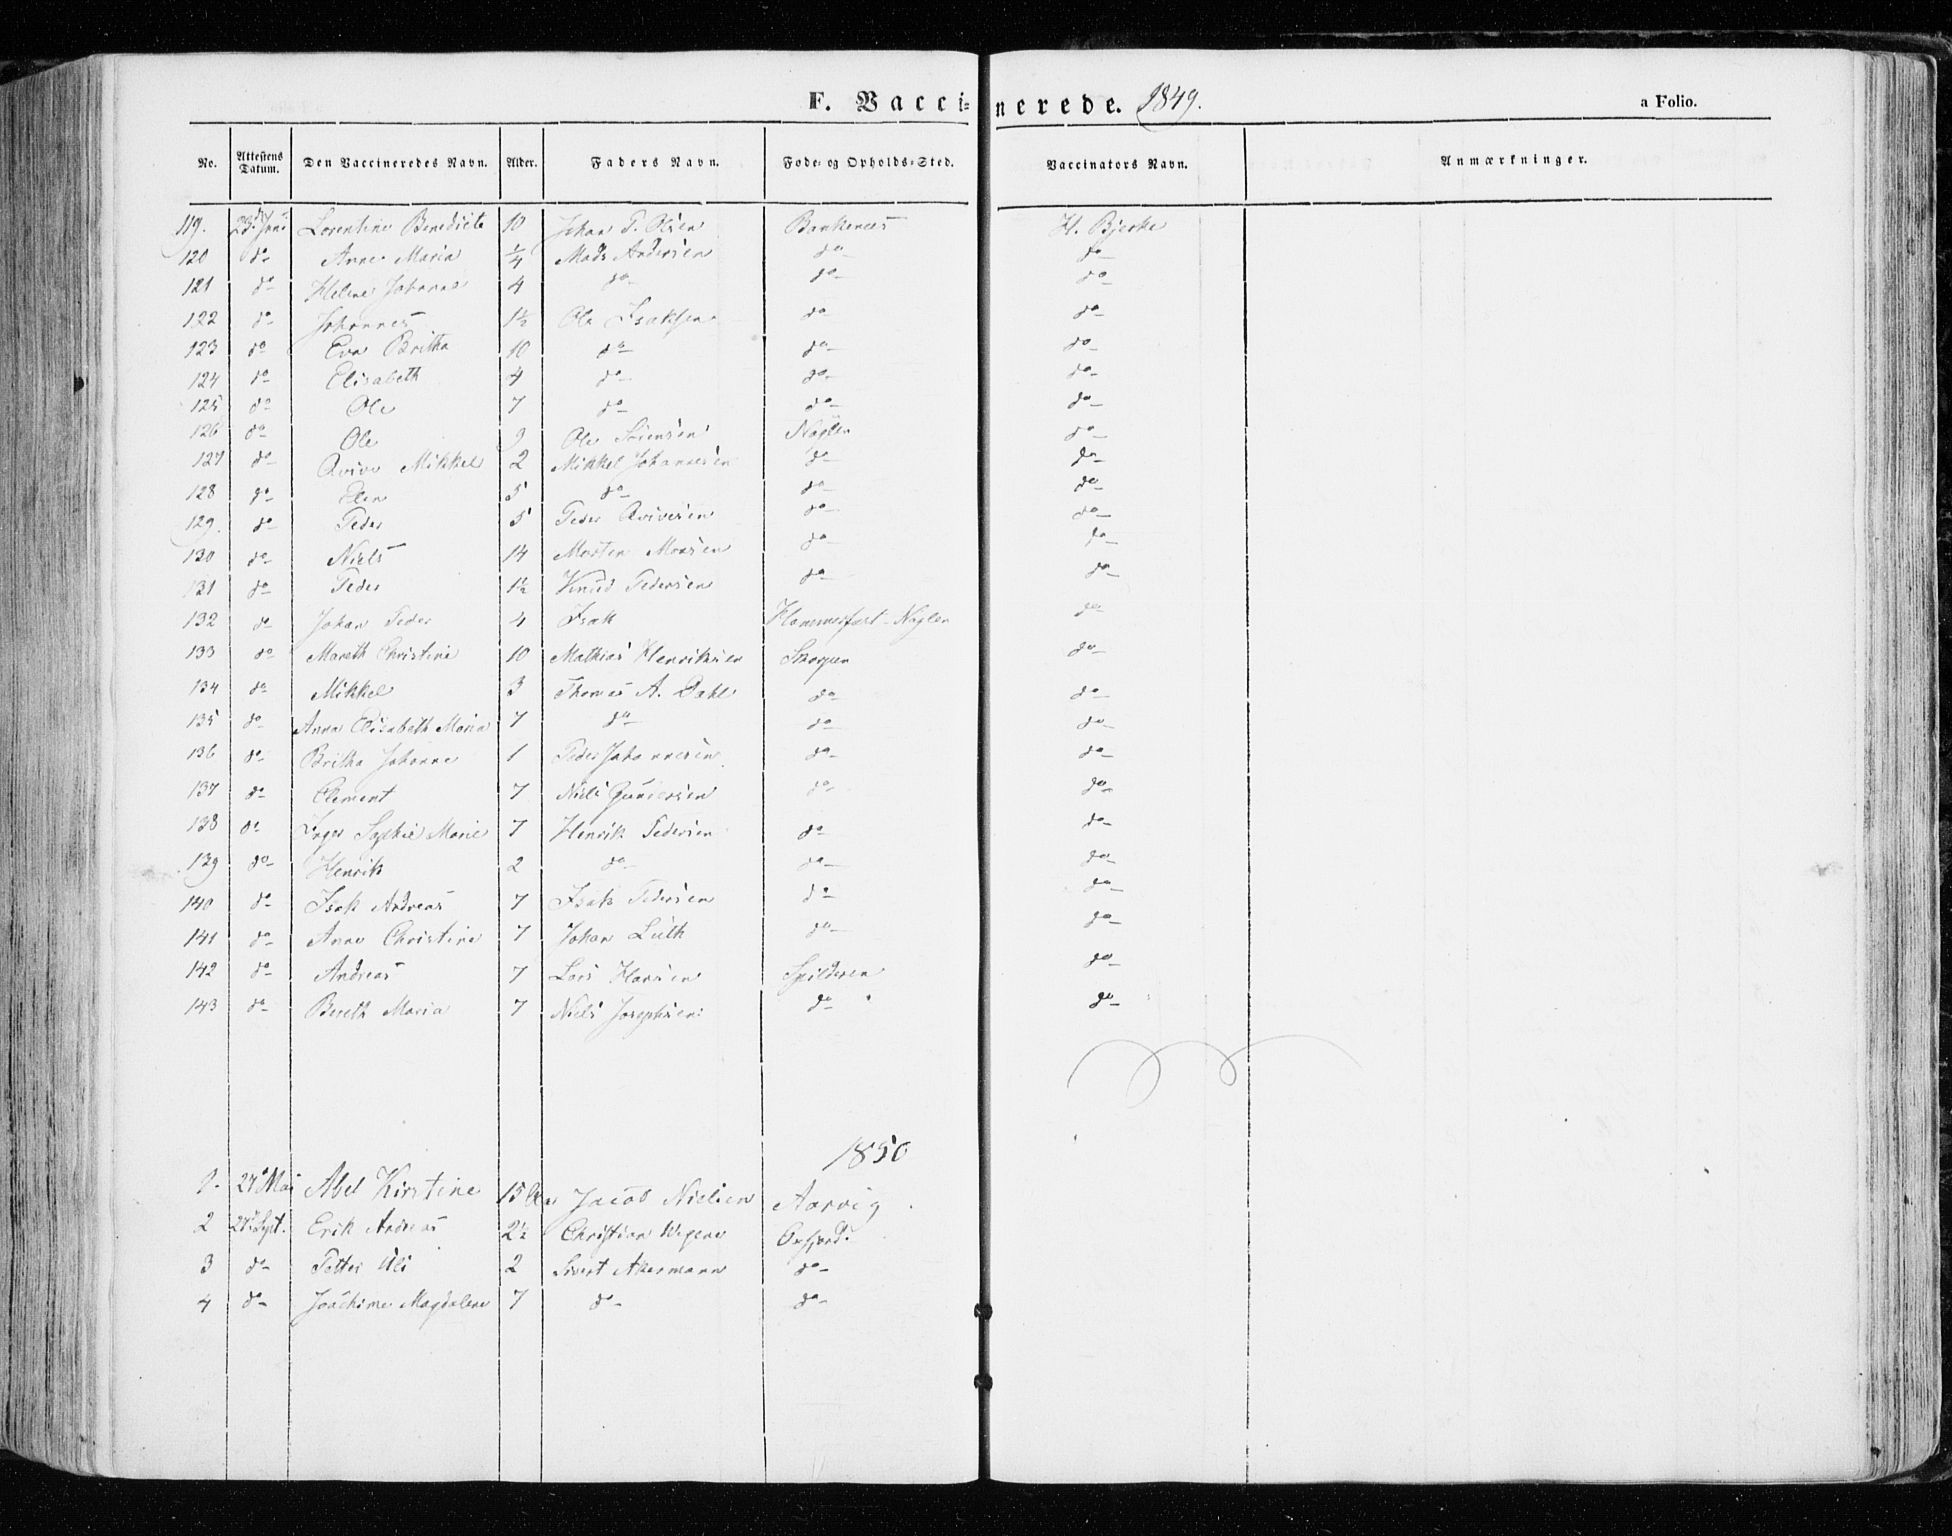 F. Vaccinerede. 1849. a Folio.
No. Attestens Datum. Den Vaccineredes Navn. Alder. Faders Navn. Føde- og Opholds-Sted. Vaccinators Navn. Anmærkninger.
119. 23 Juni Lorentine Benedicte 10 Johan P. Olsen Bankenes H. Bjerke
120 do Anne Maria 1/4 Mads Andersen do do
121 do Helene Johanne 4 do do do
122 do Johannes 1½ Ole Isaksen do do
123 do Eva Britha 10 do do do
124 do Elisabeth 4 do do do
125 do Ole 7 do do do
126 do Ole 9 Ole Sørensen Nøglen do
127 do Avive Mikkel 2 Mikkel Johannesen do do
128 do Elen 5 do do do
129. do Peder 5 Peder Avivesen do do
130 do Niels 14 Morten Monsen do do
131 do Peder 1½ Knud Pedersen do do
132 do Johan Peder 4 Isak Hammerfest - Nøglen do
133 do Mareth Christine 10 Mathias Henriksen Skorpen do
134 do Mikkel 3 Thomas A. Dahl do do
135 do Anna Elisabeth Maria 7 do do do
136 do Britha Johanne 1 Peder Johannesen do do
137 do Clement 7 Niels Gundersen do do
138 do Inger Sophie Marie 7 Henrik Pedersen do do
139 do Henrik 2 do do do
140 do Isak Andreas 7 Isak Pedersen do do
141 do Anne Christine 7 Johan Lüth do do
142 do Andreas 7 Lars Hansen Spilderen do
143 do Bereth Maria 7 Niels Josephsen do do
1850
1. 27 Mai Abel Kirstine 15 Aar Jacob Nielsen Aarvig
2 27 Sept. Erik Andreas 2½ Christian Oxfjord
3 do Petter Uli 2 Sivert Akermann do
4 do Joachime Magdalene 7 do do